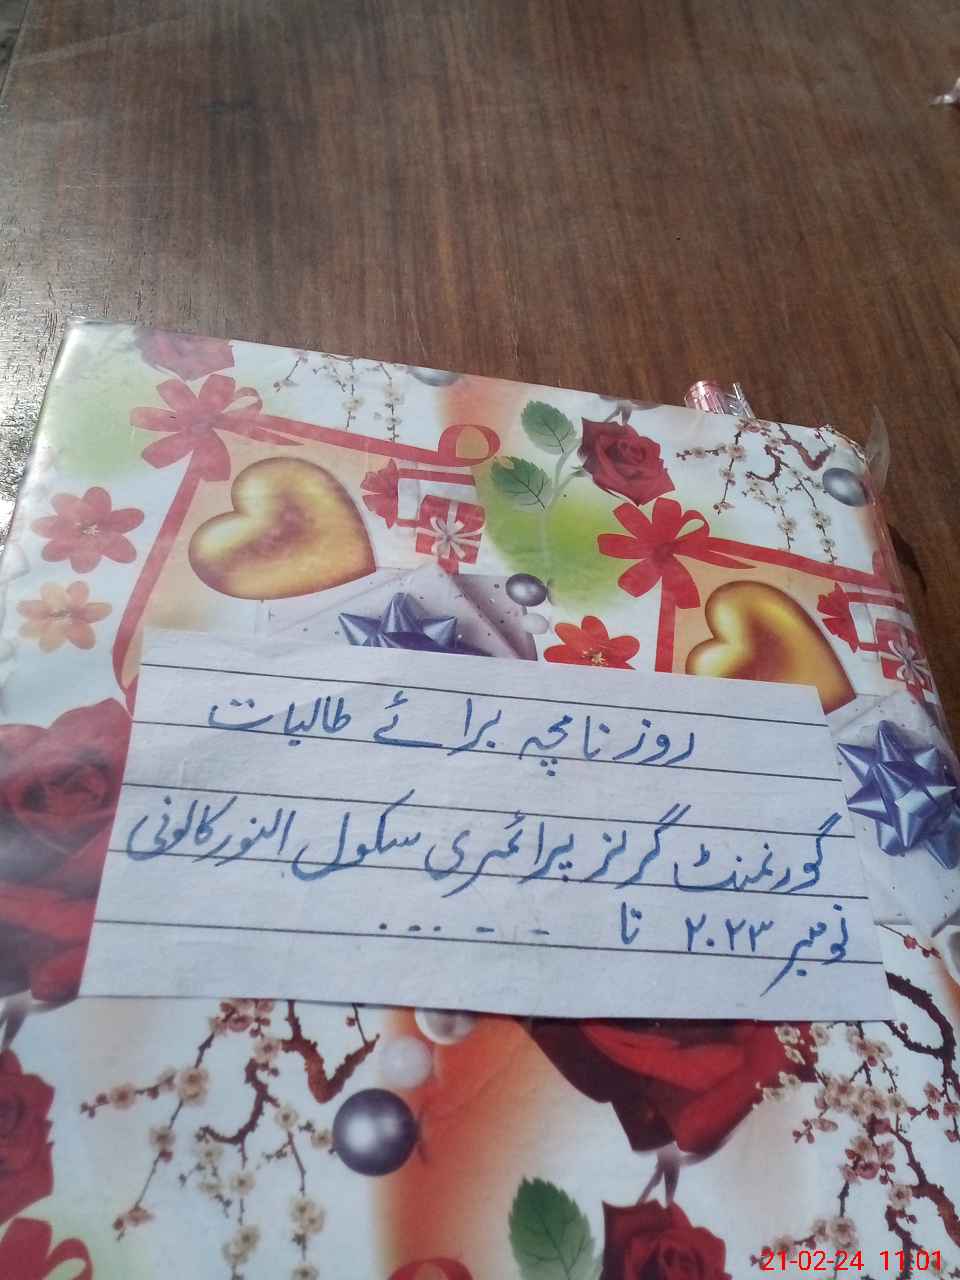 روزنامچہ برائے طالبات
گورنمنٹ گرلز پرائمری سکول النور کالونی
نومبر ۲۰۲۳ تا - - - - - -
21-02-24 11:01